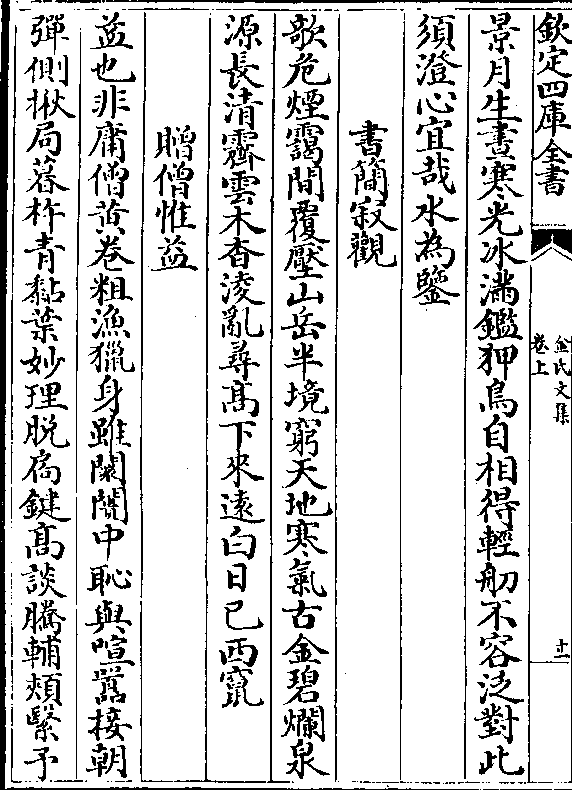 欽定四庫全書
金氏文集
卷上
十一
景月生晝寒光冰滿鑑狎鳥自相得輕舠不容泛對此
須澄心宜哉水為鑒
書簡寂觀
欹危煙靄間覆壓山岳半境窮天地寒氣古金碧爛泉
源長清霽雲木杳淩亂尋高下來遠白日已西竄
贈僧惟益
益也非庸僧黃卷粗漁獵身雖闤闠中恥與喧囂接朝
彈側楸局暮杵青黏葉妙理脫扄鍵高談騰輔頰繄予